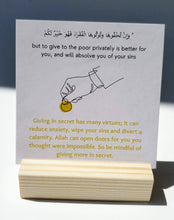 وَإِن تُخْفُوهَا وَتُؤْتُوهَا الْفُقَرَاءَ فَهُوَ خَيْرٌ لَّكُمْ
but to give to the poor privately is better for
you, and will absolve you of your sins
Giving in secret has many virtues; It can
reduce anxiety, wipe your sins and divert a
calamity. Allah can open doors for you you
thought were impossible. So be mindful of
giving more in secret.